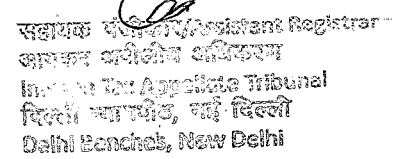 सहायक पंजीकार/Assistant Registrar
आयकर अपीलीय अधिकरण
Income Tax Appellate Tribunal
दिल्ली न्यायपीठ, नई दिल्ली
Delhi Benches, New Delhi